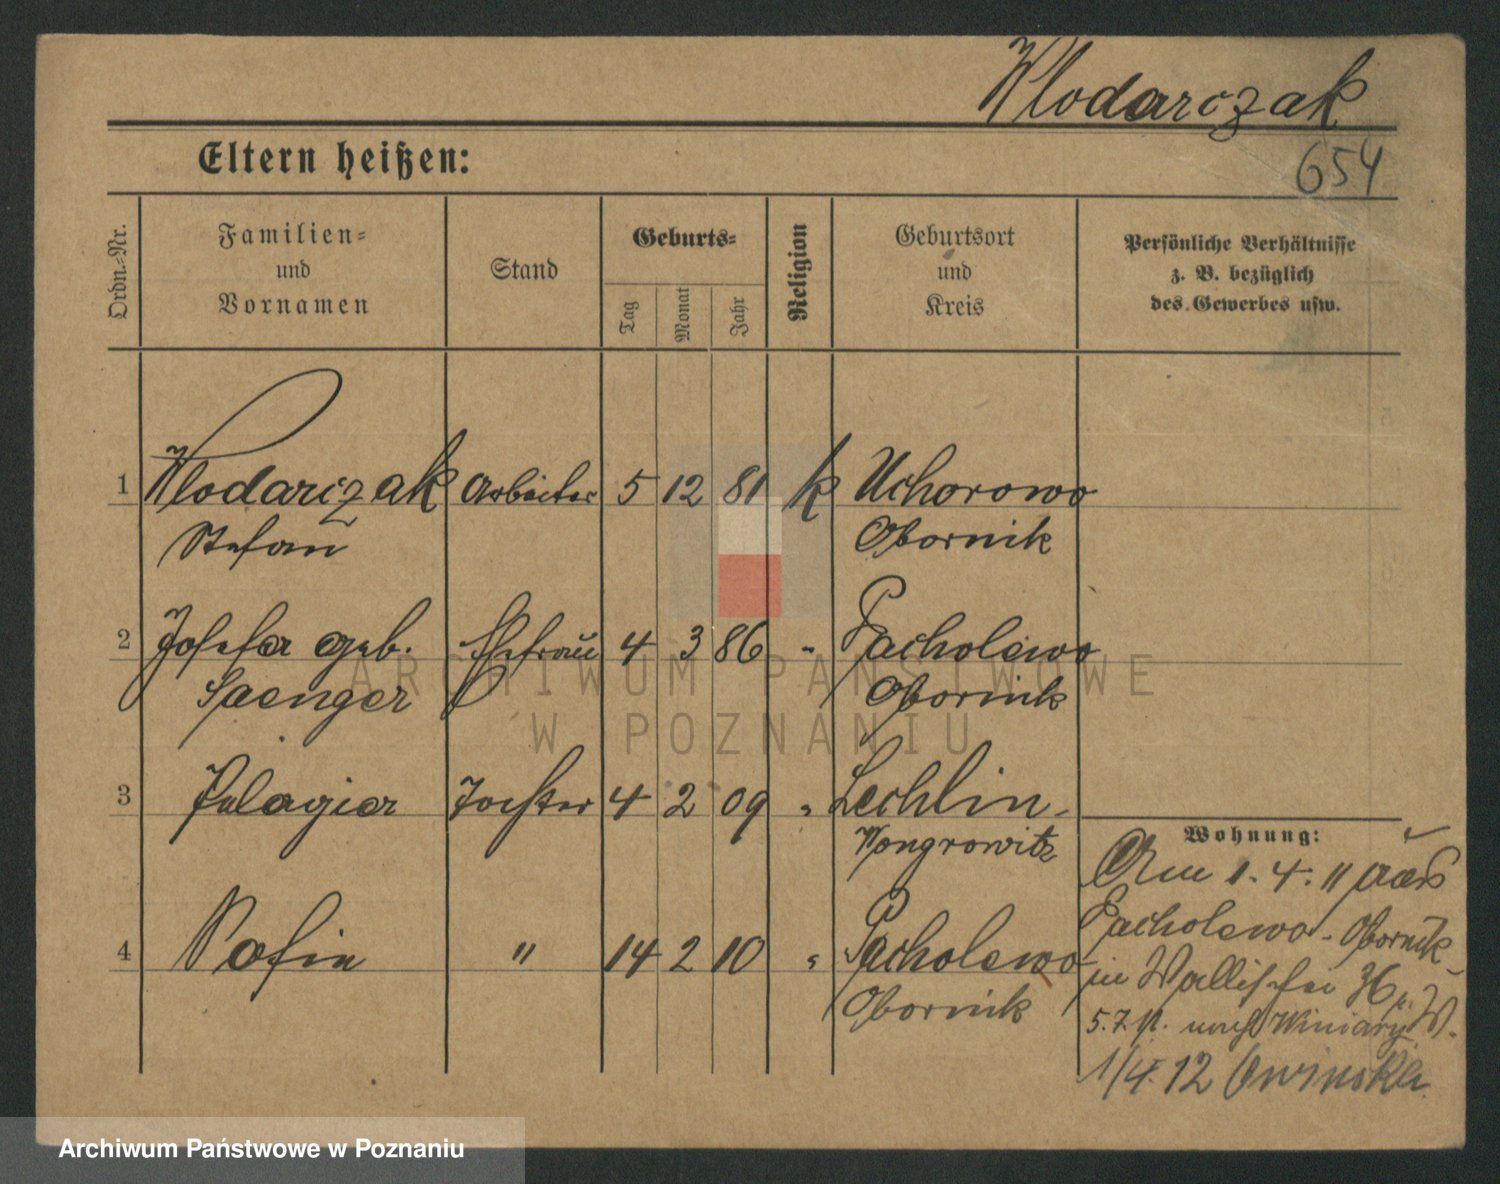 Wlodarczak
Eltern heißen:
654
Ordn.-Nr.
Familien-
und
Vornamen
Stand
Geburts-
Tag
Monat
Jahr
Religion
Geburtsort
und
Kreis
Persönliche Verhältnisse
z. B. bezüglich
des Gewerbes usw.
1 Wlodarczak Arbeiter 5 12 81 k Uchorowo
Stefan Obornik
2 Josefa geb. Ehefrau 4 3 86 " Pacholewo
Saenger Obornik
ARCHIWUM PAŃSTWOWE
W POZNANIU
3 Pelagia Tochter 4 2 09 " Lechlin
Wongrowitz
4 Sofie " 14 2 10 " Pacholewo
Obornik
Wohnung:
Am 1. 4. 11 aus
Pacholewo - Obornik
in 36
5.7.11. nach Winiary
1/4 12 Owinska
Archiwum Państwowe w Poznaniu